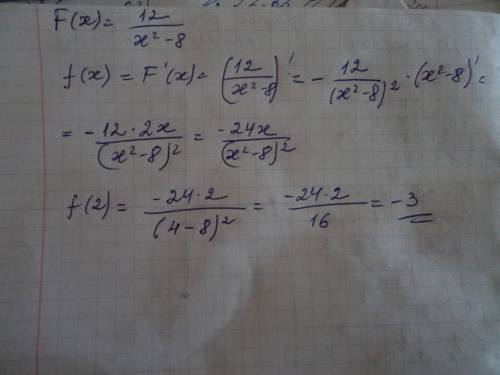 F(x) = 12/(x²-8)
f(x) = F'(x) = (12/(x²-8))' = - 12/(x²-8)² · (x²-8)' =
= -12·2x/(x²-8)² = -24x/(x²-8)²
f(2) = -24·2/(4-8)² = -24·2/16 = -3